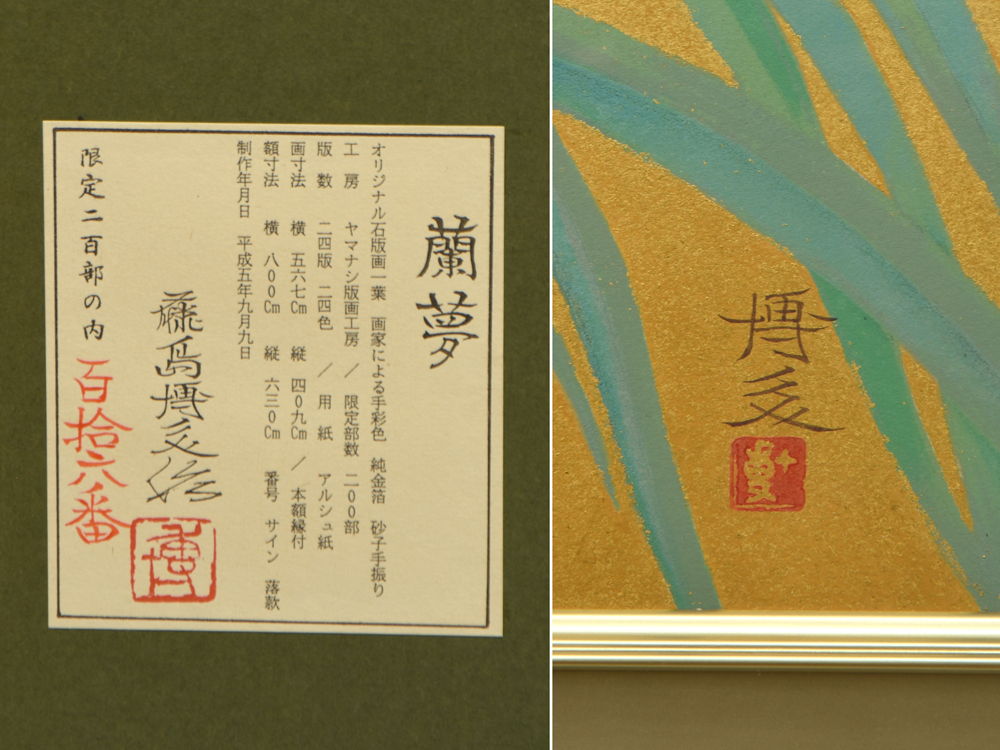 蘭夢
オリジナル石版画一葉 画家による手彩色 純金箔 砂子手振り
工房 ヤマナシ版画工房 / 限定部数 二〇〇部
版数 二四版 二四色 / 用紙 アルシュ紙
画寸法 横 五六七Cm 縦 四〇九Cm / 本額縁付
額寸法 横 八〇〇Cm 縦 六三〇Cm 番号 サイン 落款
制作年月日 平成五年九月九日
藤島博文
限定二百部の内 百拾六番
博
博文